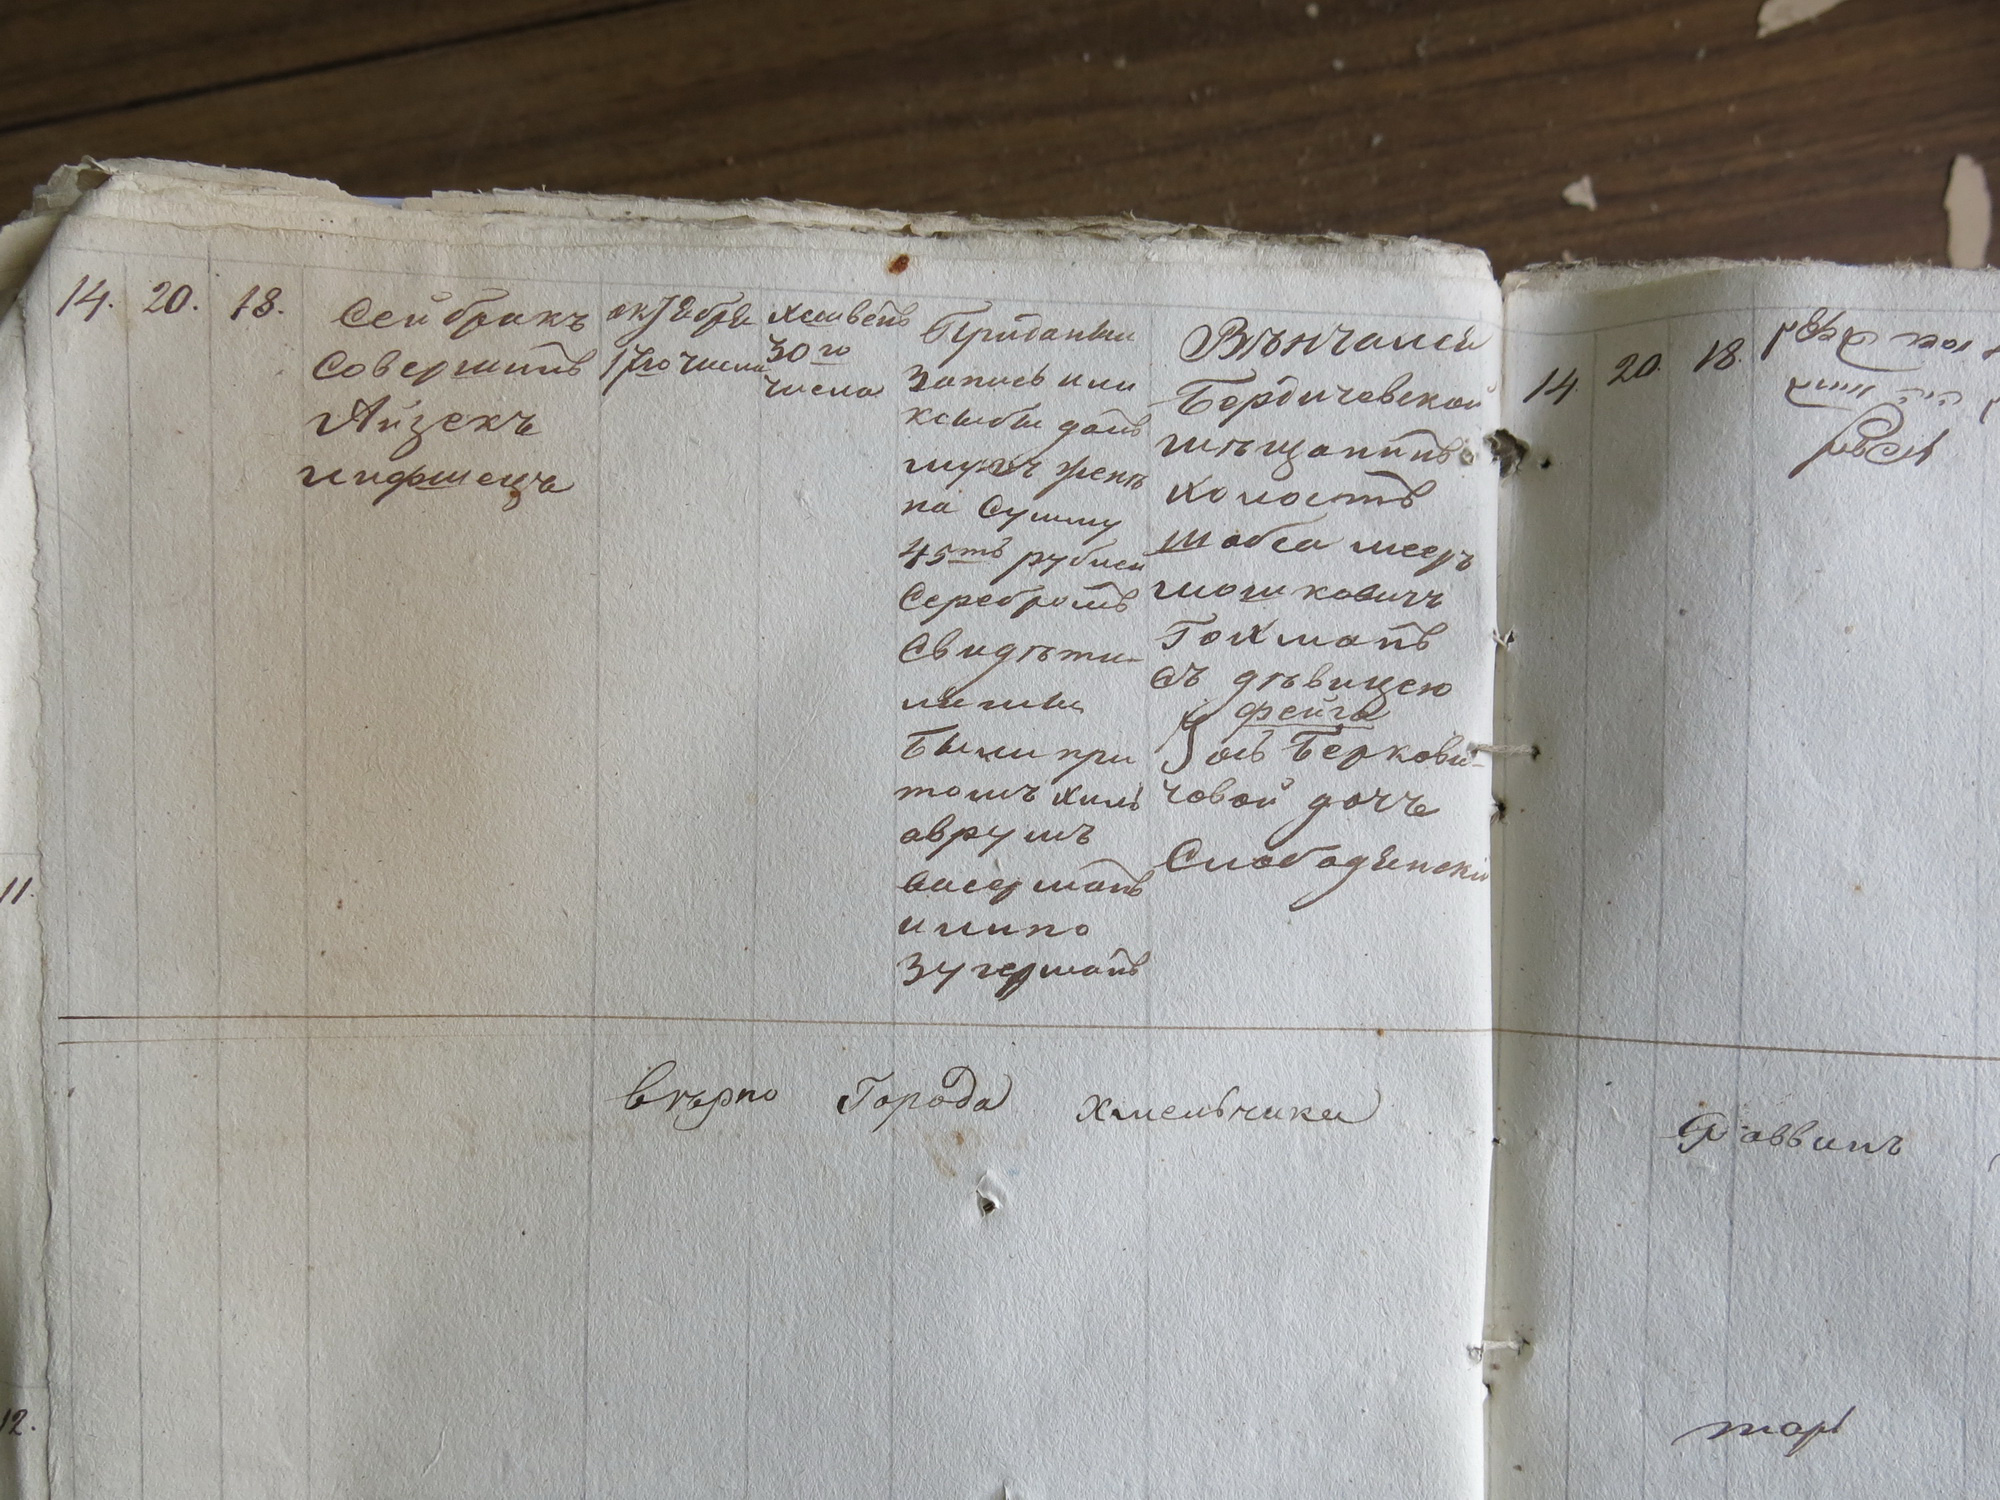 14. 20. 18.
Сей бракъ
Совершилъ
Айзекъ
Лифшецъ
октября
17го числа
хешвенъ
30го
числа
Приданны
запись или
ксыбы далъ
мужъ женѣ
на Сумму
45ть рублей
Серебромъ
Свидѣте-
лями
Были при
томъ хиль
аврумъ
васерманъ
и липо
Зугерманъ
Вѣнчался
Бердичевской
мѣщанинъ
холостъ
Шабса мееръ
мошковичъ
Гохманъ
съ дѣвицею
фейга
Золъ Беркови-
човой дочь
Слободянскій
11.
вѣрно Города Хмельника
12.
14. 20. 18.
Раввинъ